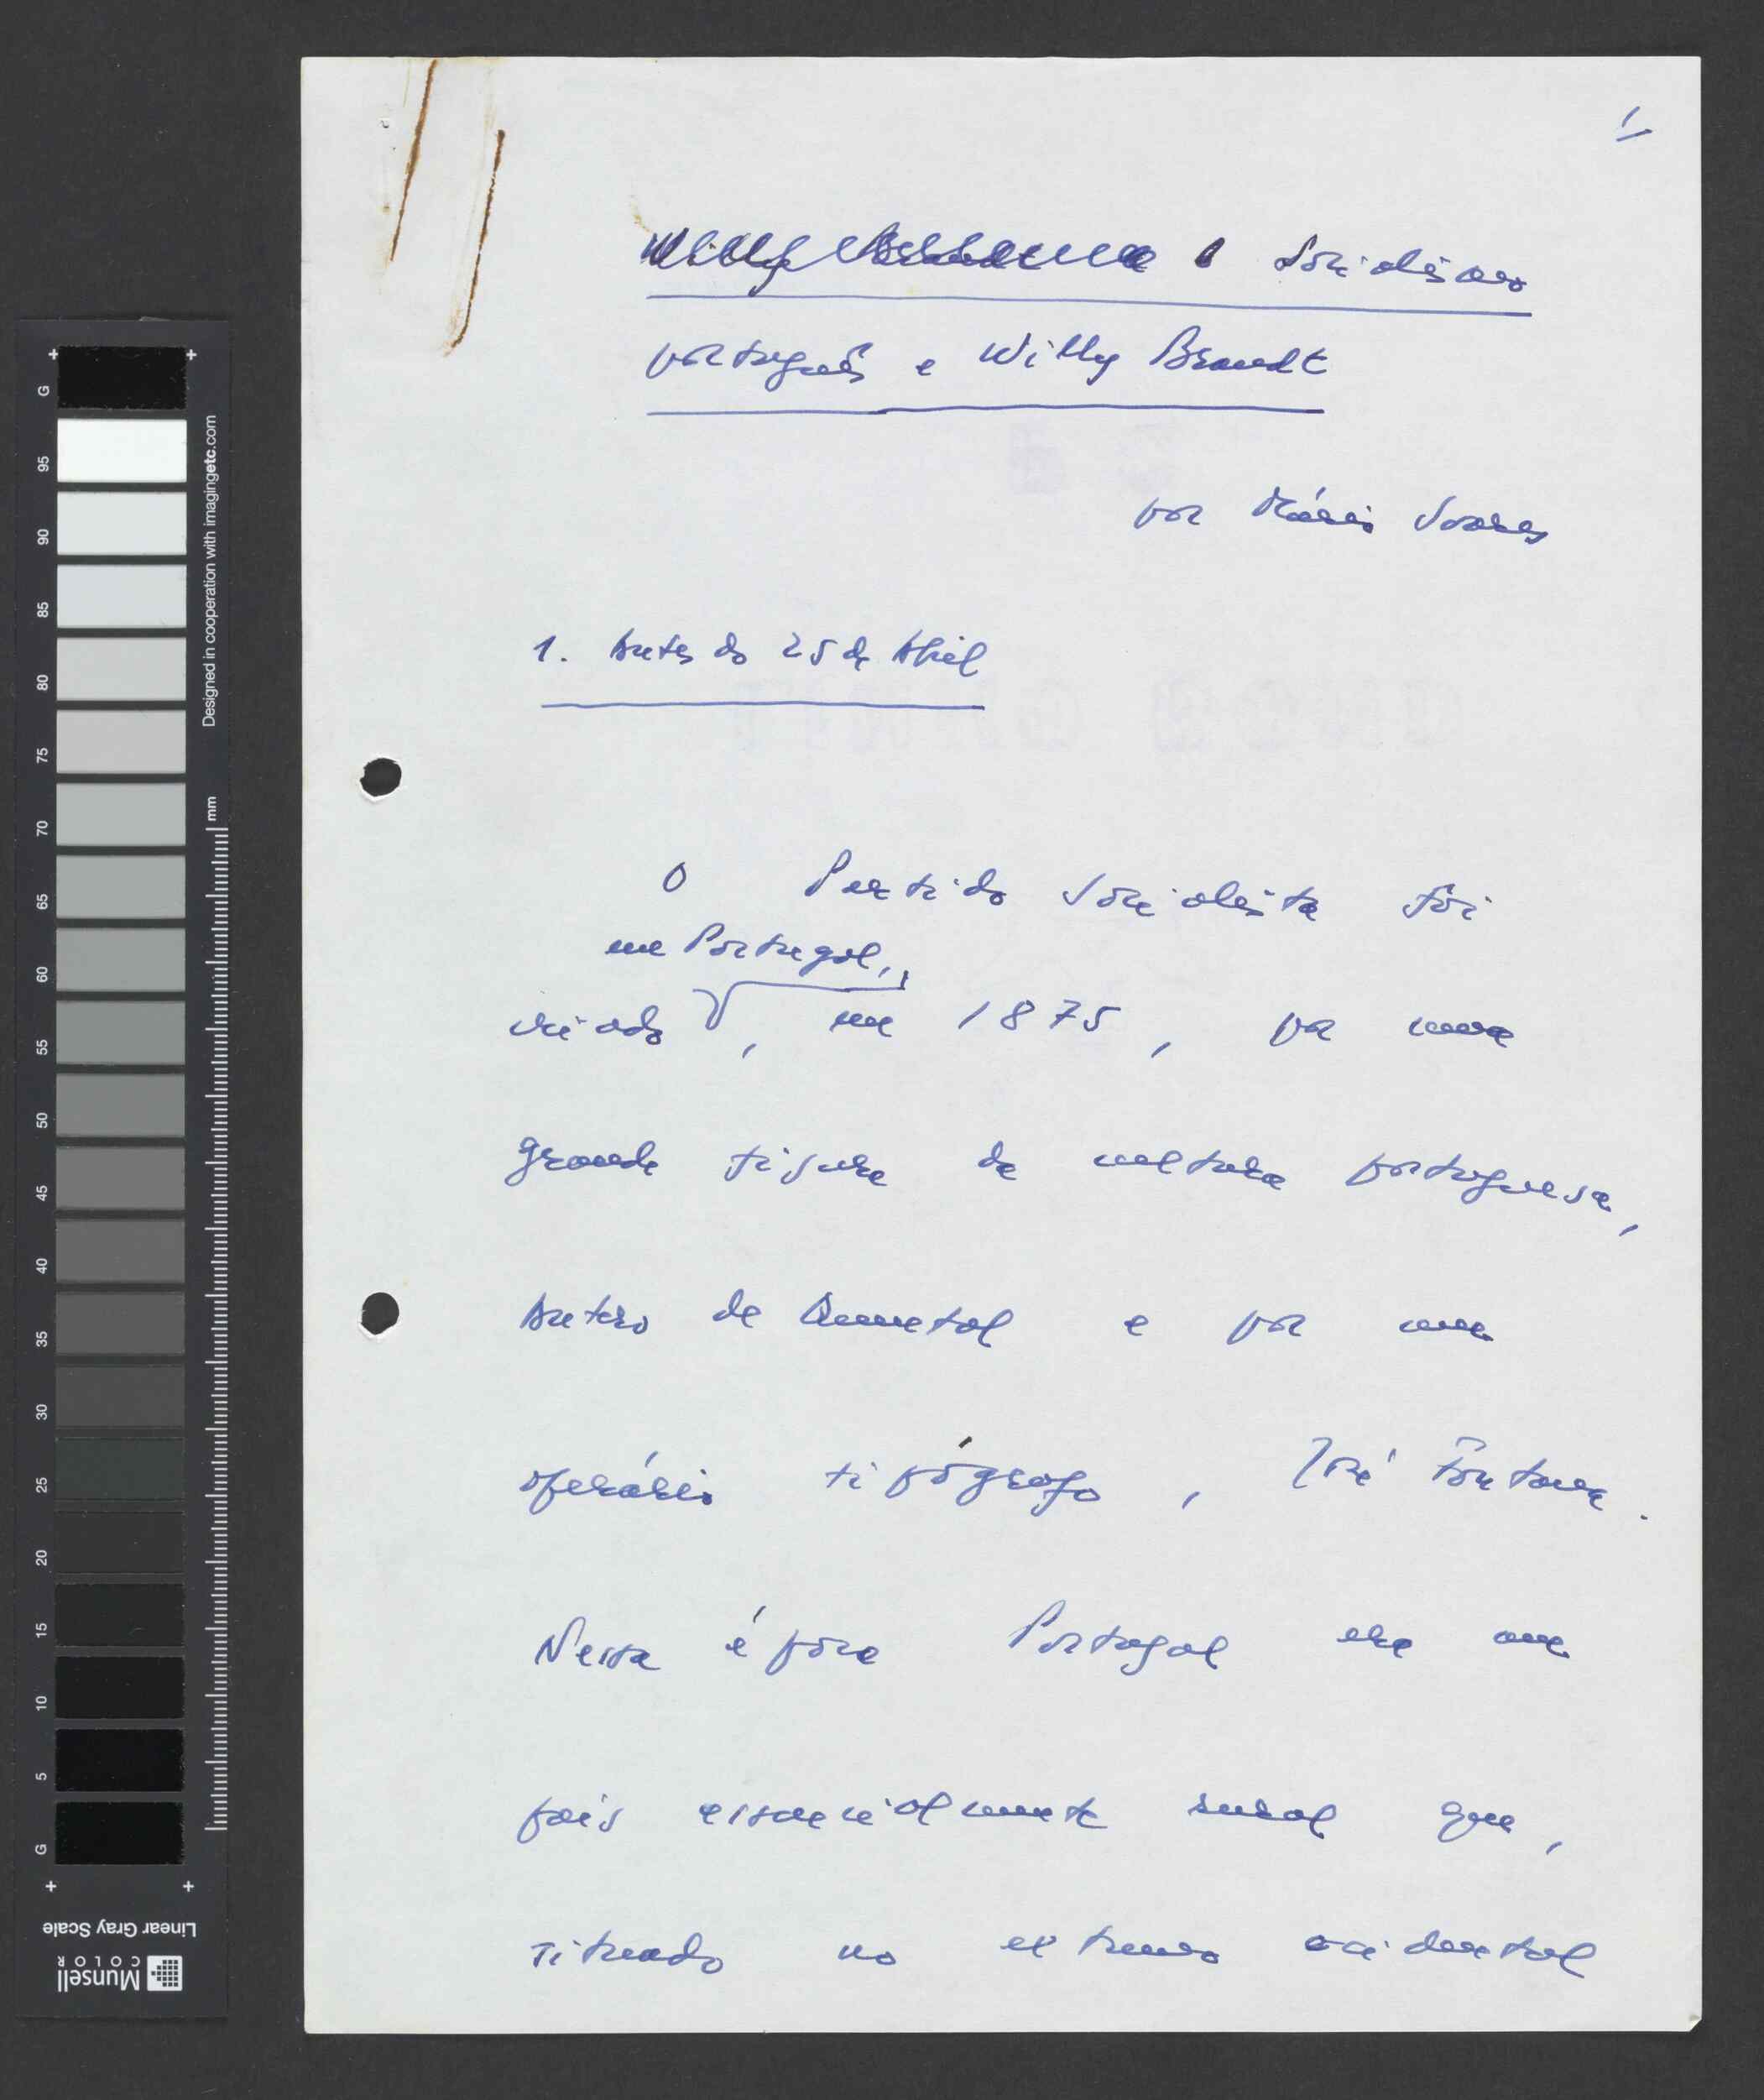 1
O Socialismo
português e Willy Brandt
por Mário Soares
1. Antes do 25 de Abril
O Partido Socialista foi
em Portugal,
criado, em 1875, por uma
grande figura da cultura portuguesa,
Antero de Quental e por um
operário tipógrafo, José Fontana.
Nessa época Portugal era um
país essencialmente rural que,
situado no extremo ocidental
G
95
90
85
80
75
70
65
60
55
50
45
40
35
30
25
20
15
10
5
G
Designed in cooperation with imagingetc.com
mm
Linear Gray Scale
Munsell
COLOR